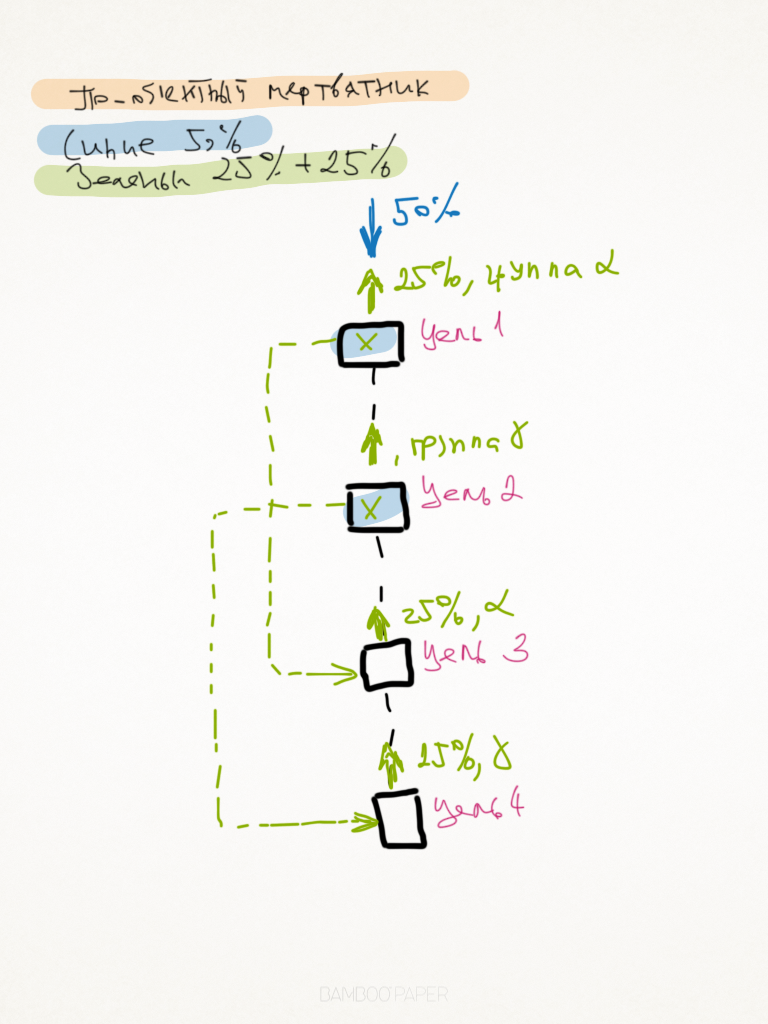 По-объектный мертвятник
Синие 50%
Зелёный 25% + 25%
50%
25%, группа α
X
Цель 1
, группа γ
X
Цель 2
25%, α
Цель 3
25%, γ
Цель 4
BAMBOO PAPER